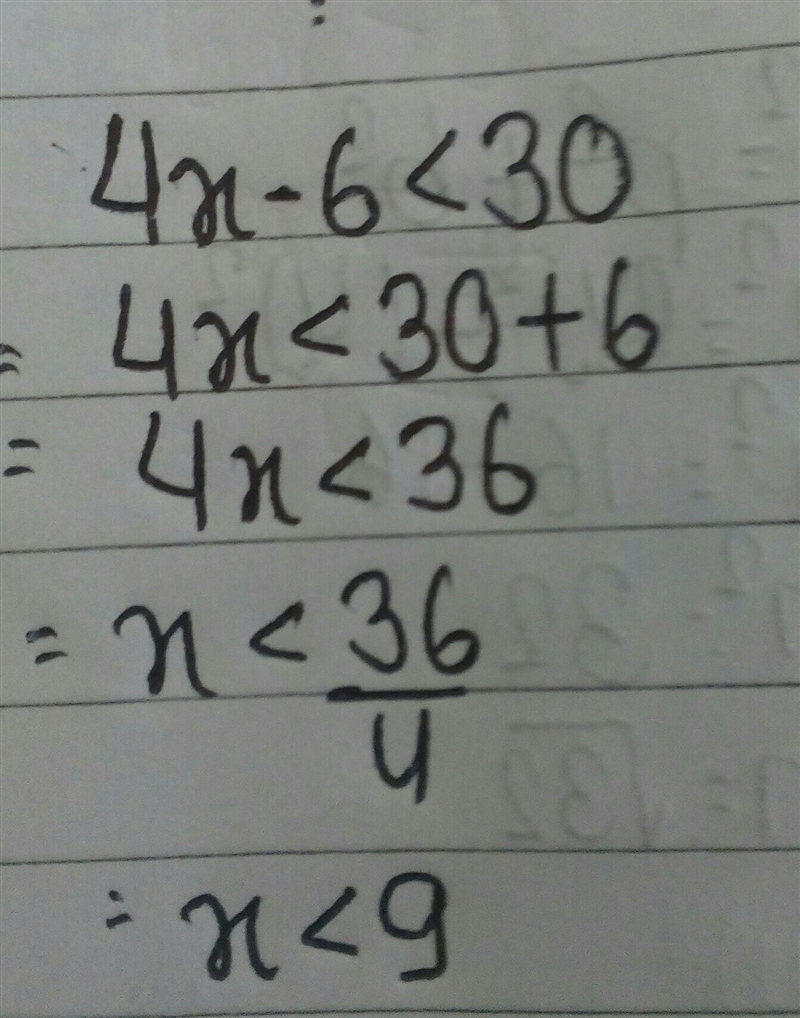 4x-6<30
= 4x<30+6
= 4x<36
= x<36/4
= x<9